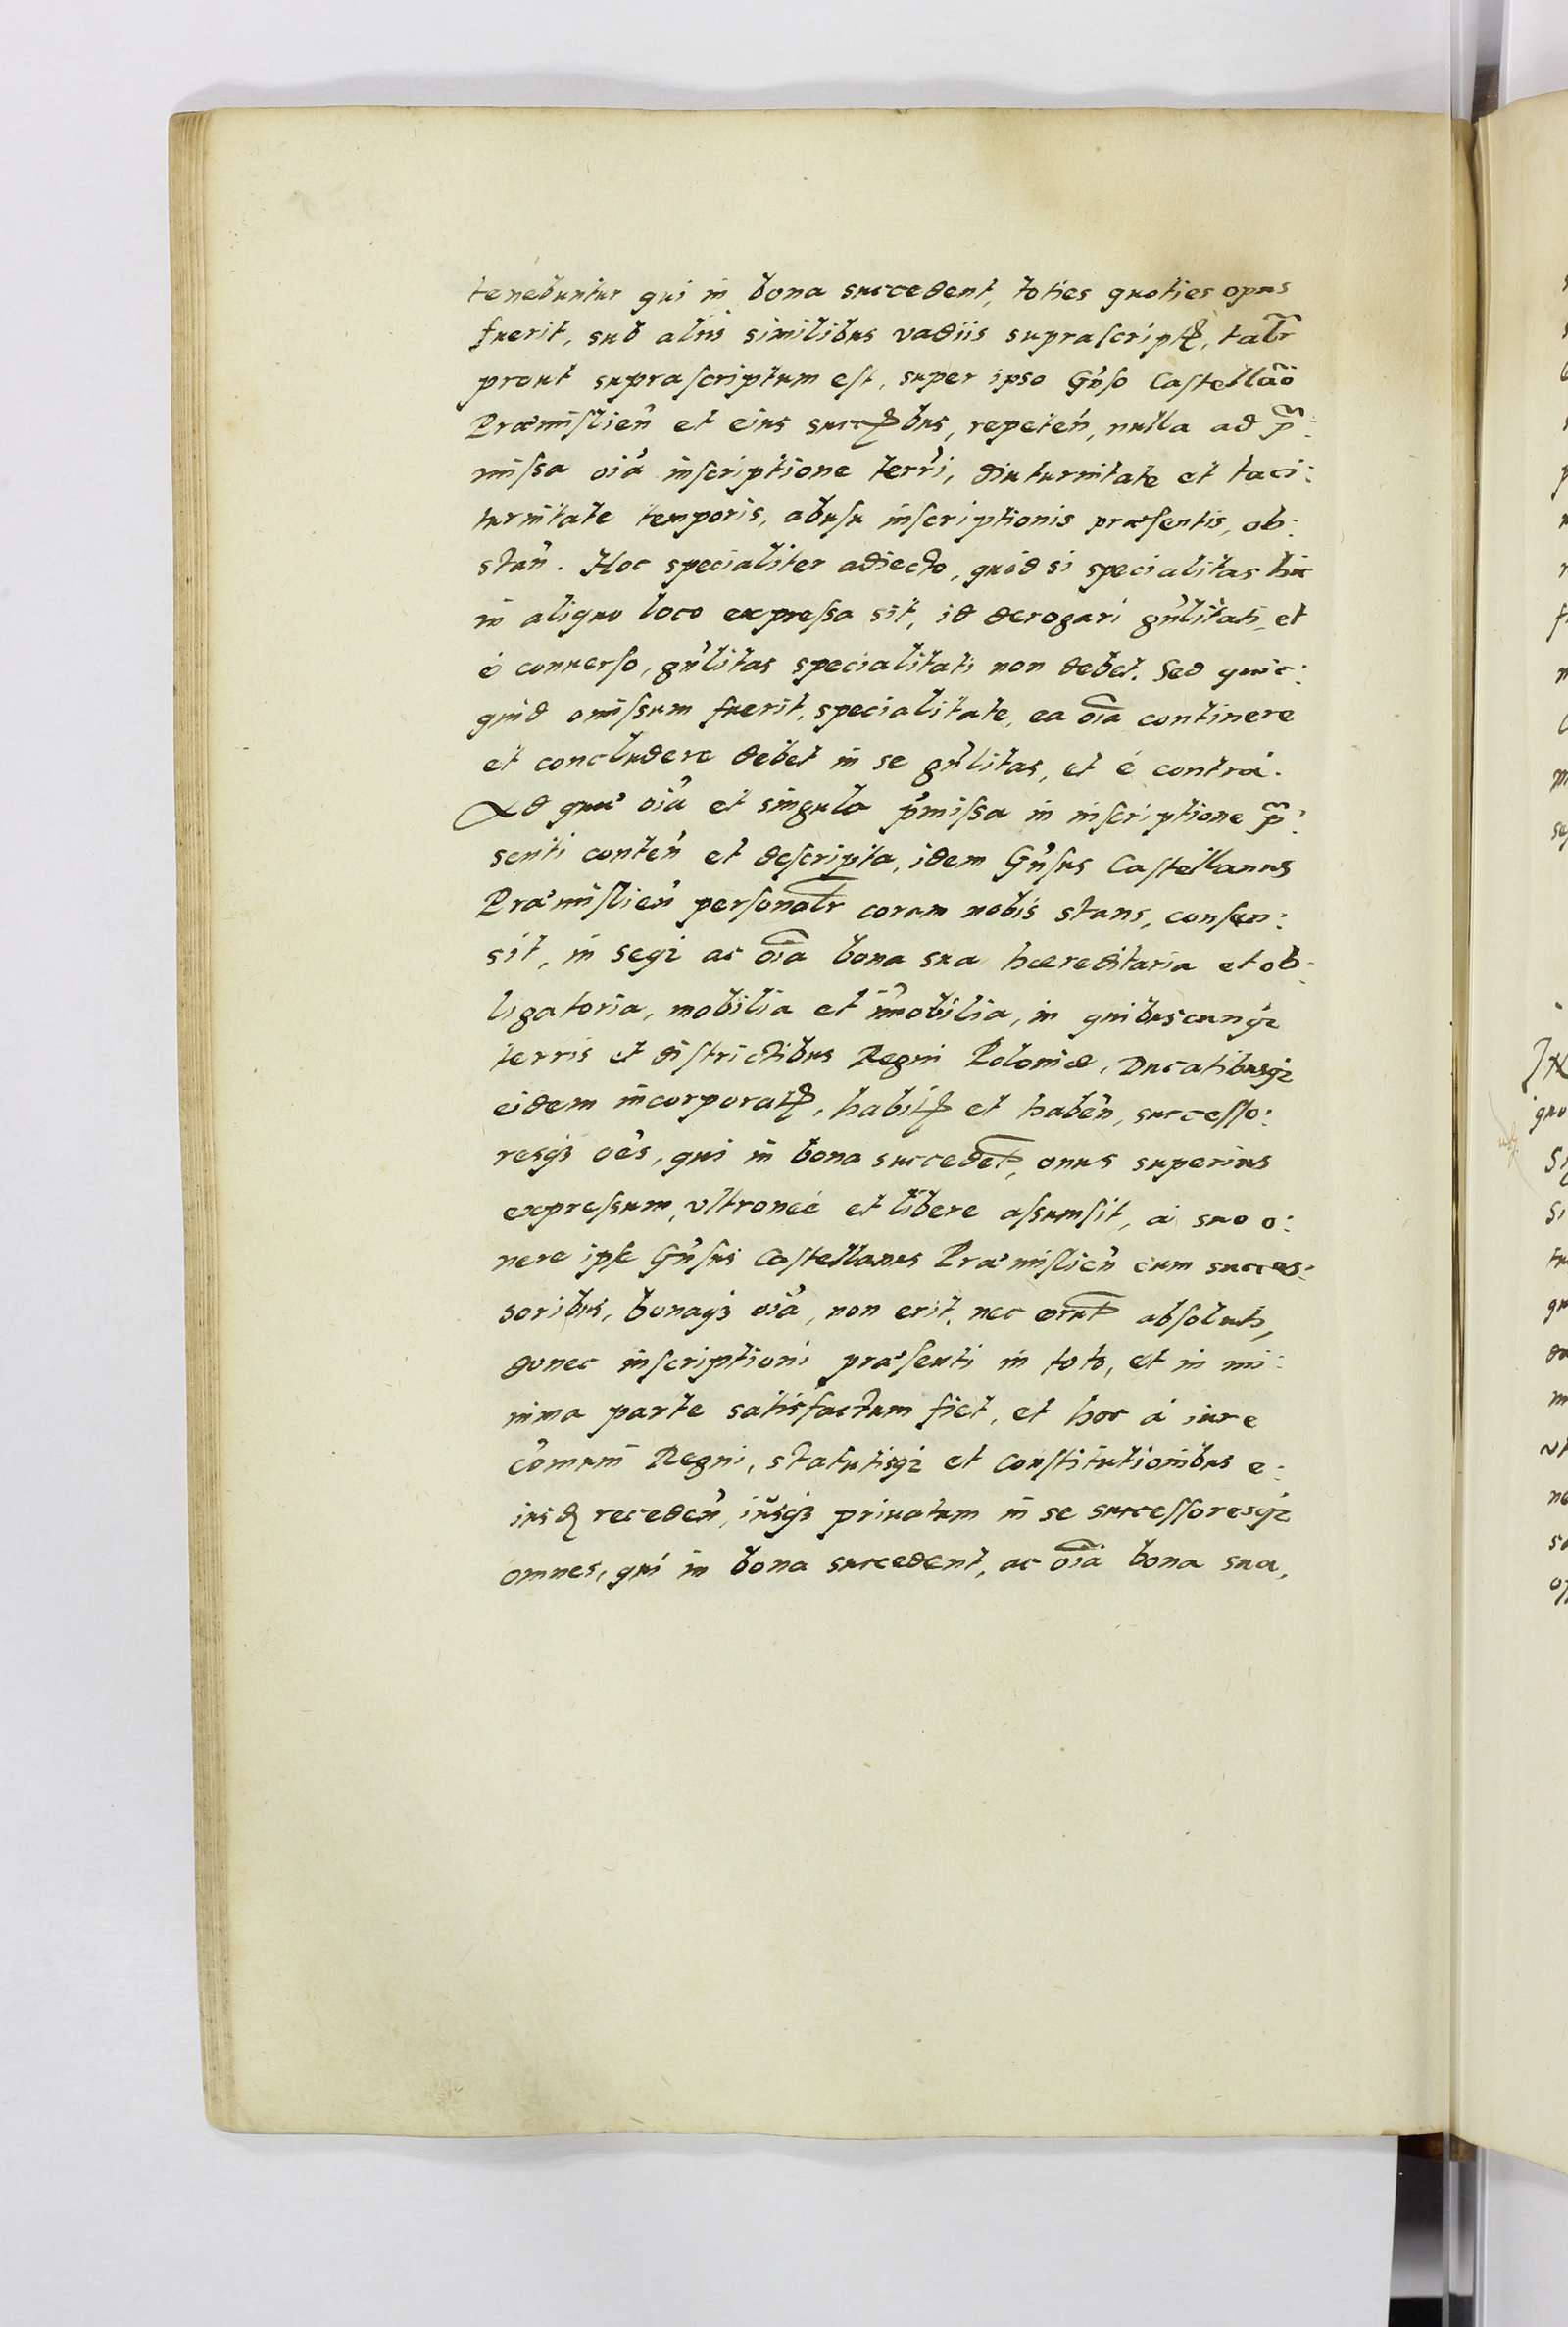 tenebuntur qui in bona succedent, toties quoties opus
fuerit, sub aliis similibus vadiis suprascriptꝭ, tal̃r
prout suprascriptum est, super ipso Gñso Castellão
Præmislieñ et eius succꝭbus, repeteñ, nulla ad p̃:
missa oĩa inscriptione terrī, diuturnitate et taci:
turnitate temporis, abusu inscriptionis præsentis, ob:
stañ. Hoc specialiter adiecto, quòd si specialitas hic
in aliquo loco expressa sit, id derogari gñlitati, et
è conuerso, gñlitas specialitati non debet. Sed quic:
quid omissum fuerit, specialitate, ea oĩa continere
et concludere debet in se gñlitas, et è contrà.
Ad quæ oĩa et singula p̃missa in inscriptione p̃:
senti conteñ et descripta, idem Gñsus Castellanus
Præmislieñ personal̃r coram nobis stans, consen:
sit, in seqꝫ ac oĩa bona sua hæreditaria et ob:
ligatoria, mobilia et im̃obilia, in quibuscunqꝫ
terris et districtibus Regni Poloniæ, Ducatibusqꝫ
eidem incorporatꝭ, habitꝭ et habeñ, successo:
resqꝫ oẽs, qui in bona succedẽt, onus superius
expressum, vltroneè et liberè assumsit, à suo o:
nere ipse Gñsus Castellanus Præmislieñ cum succes:
soribus, bonaqꝫ oĩa, non erit, nec erũt absoluti,
donec inscriptioni præsenti in toto, et in mi:
nima parte satisfactum fiet, et hoc à iure
com̃uni Regni, statutisqꝫ et Constitutionibus e:
iusđ recedeñ, iusqꝫ priuatum in se successoresqꝫ
omnes, qui in bona succedent, ac oĩa bona sua,